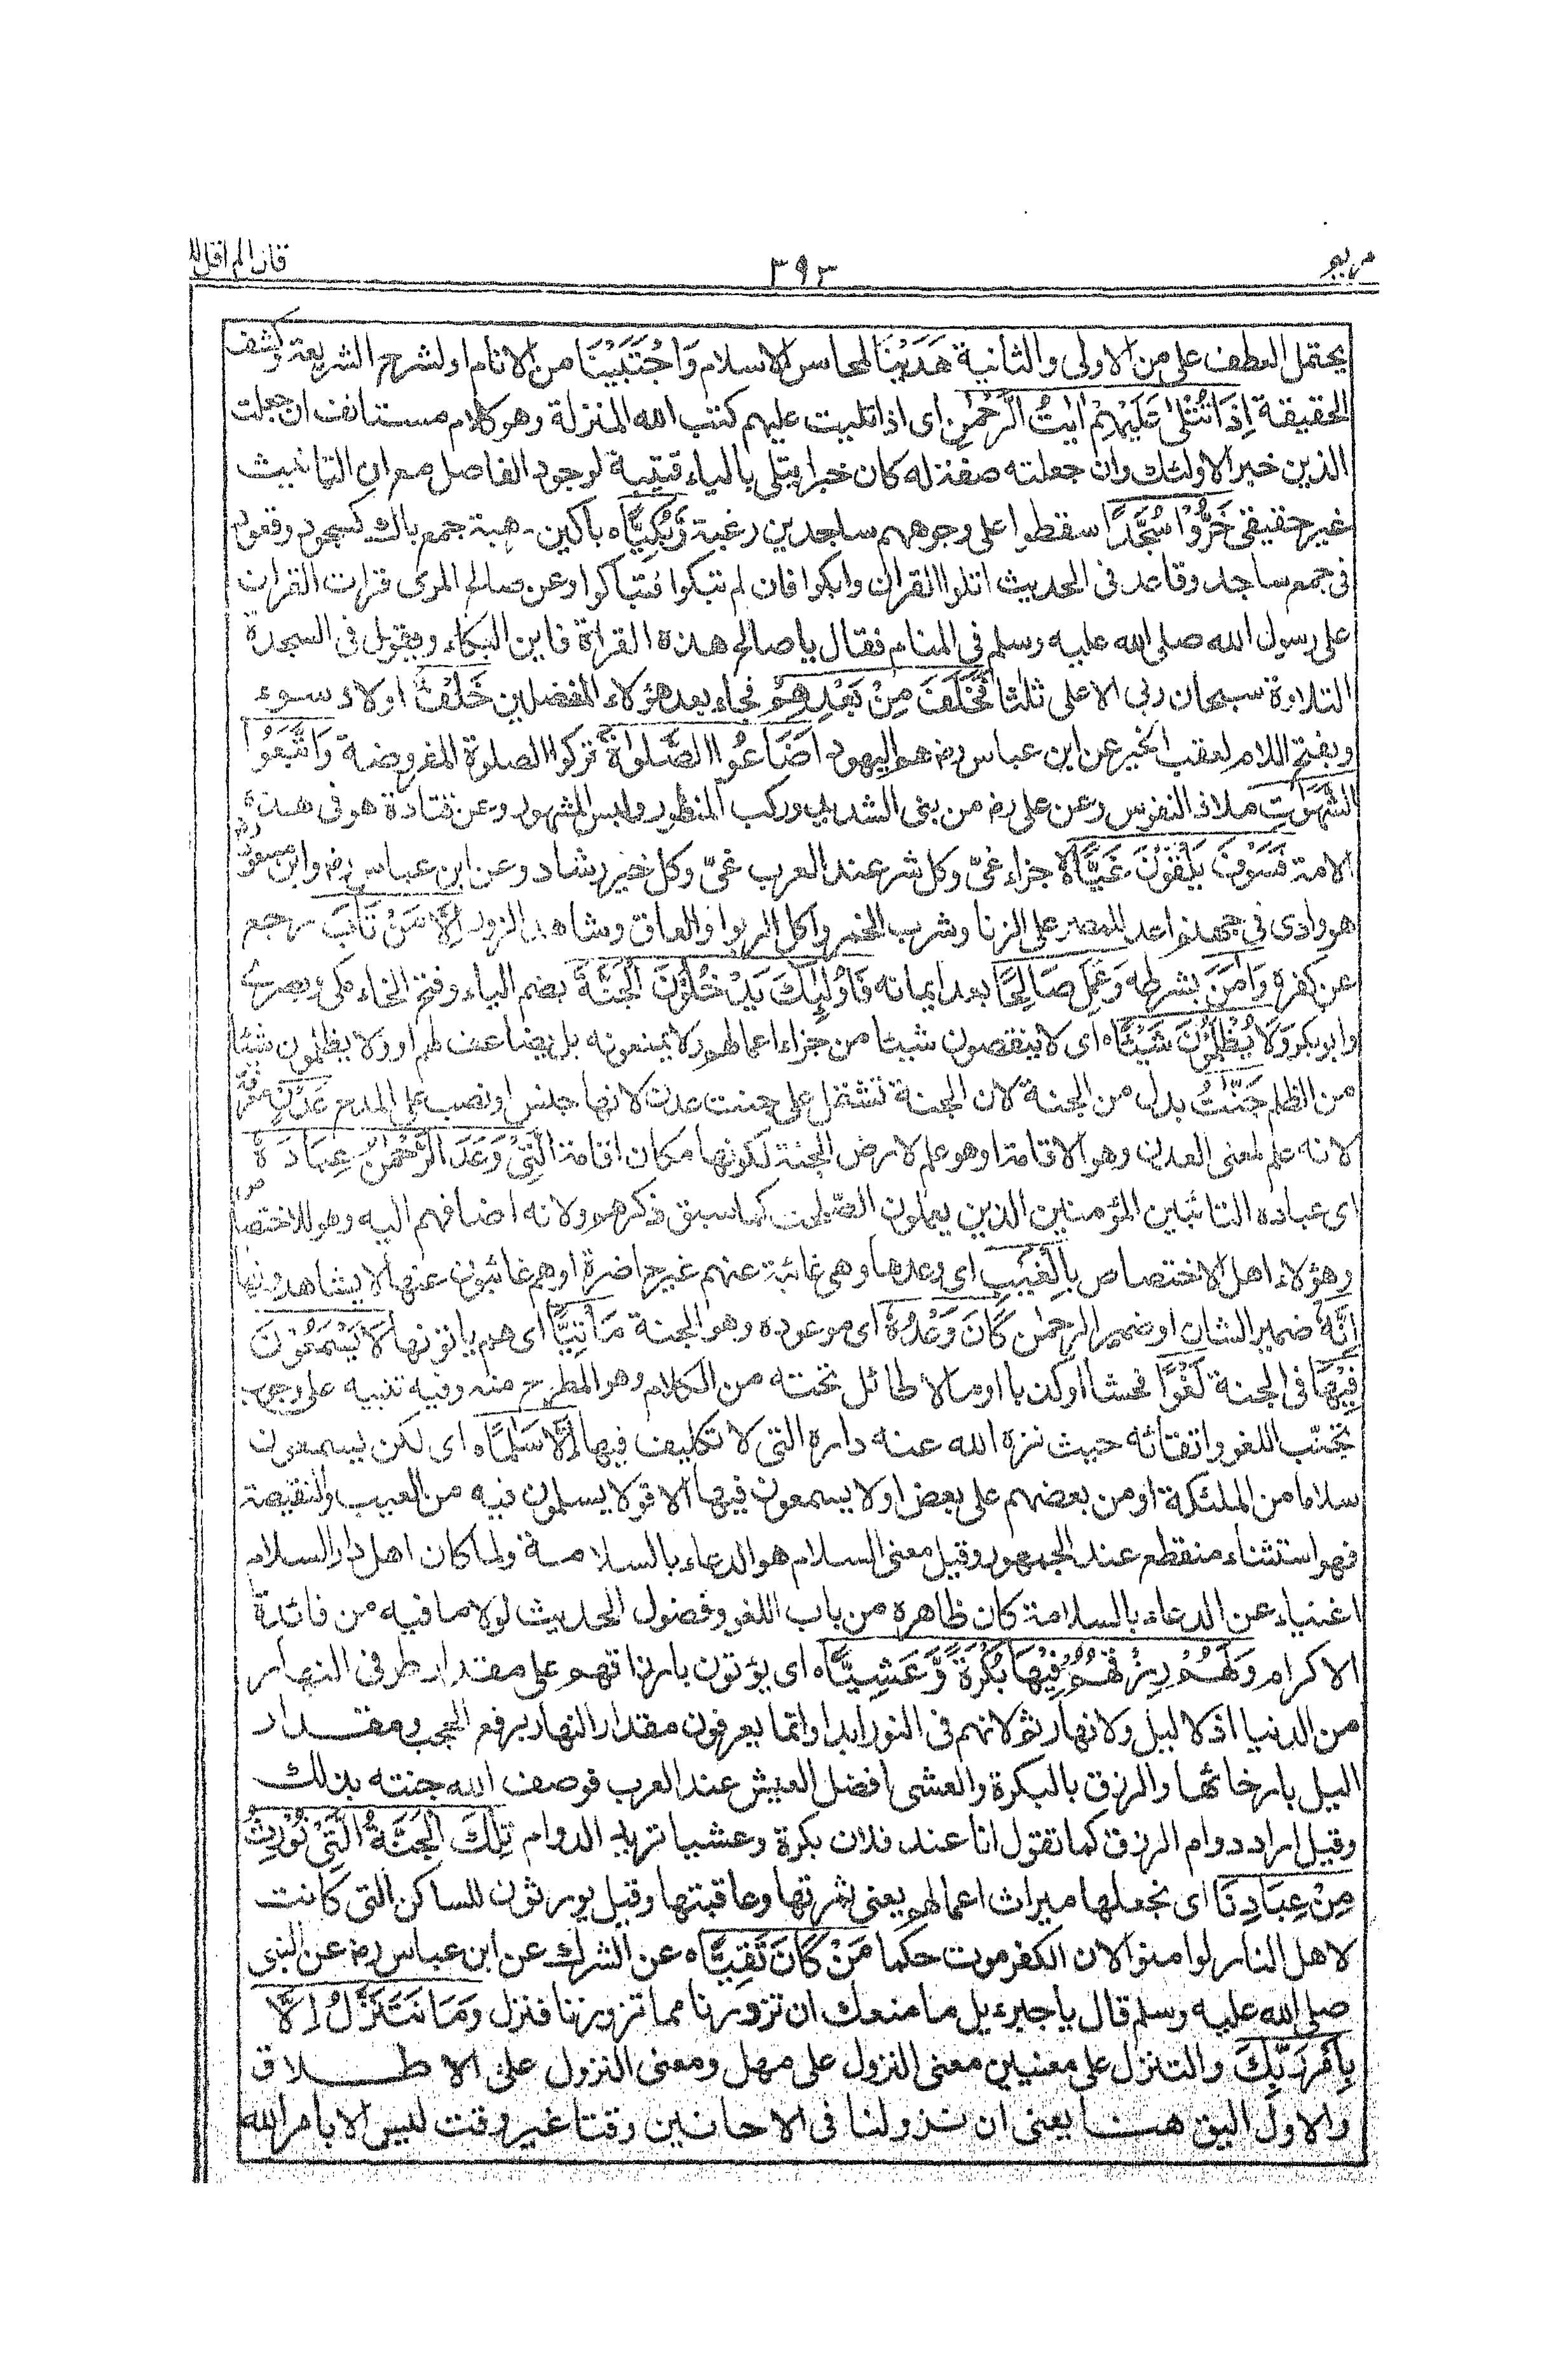 مريم
٣٩٣
قال الم اقل لك
يحتمل العطف على من الاولى والثانية هَدَيْنَا لمحاسن الاسلام وَاجْتَبَيْنَا من الانام او لشرح الشريعة وكشف
الحقيقة اِذَا تُتْلٰى عَلَيْهِمْ اٰيٰتُ الرَّحْمٰنِ اى اذا تليت عليهم كتب الله المنزلة وهو كلام مستانف ان جعلت
الذين خبر الاولئك وان جعلته صفة له كان خبرا يتلى بالياء قتيبة لوجود الفاصل مع ان التانيث
غير حقيقى خَرُّوْا سُجَّدًا سقطوا على وجوههم ساجدين رغبة وَّبُكِيًّاه باكين ـ هبة جمع باك كسجود وقعود
فى جمع ساجد وقاعد فى الحديث اتلوا القران وابكوا فان لم تبكوا فتباكوا وعن صالح المرى قرات القران
على رسول الله صلى الله عليه وسلم فى المنام فقال يا صالح هذه القراة فاين البكاء ويقول فى السجدة
التلاوة سبحان ربى الاعلى ثلثا فَخَلَفَ مِنْ بَعْدِهِمْ فجاء بعد هؤلاء المفضلين خَلْفٌ اولاد سوء
وبفتح اللام لعقب الخير عن ابن عباس رض هم اليهود اَضَاعُوا الصَّلٰوةَ تركوا الصلوة المفروضة وَاتَّبَعُوا
الشَّهَوٰتِ ملاذ النفوس وعن على رض من بنى الشديد وركب المنظور ولبس المشهور وعن قتادة هو فى هذه
الامة فَسَوْفَ يَلْقَوْنَ غَيًّاه جزاء غىّ وكل شر عند العرب غىّ وكل خير رشاد وعن ابن عباس رض وابن مسعود رض
هو وادى فى جهنم اعد للمصر على الزنا وشرب الخمر واكل الربوا والعاق وشاهد الزور اِلَّا مَنْ تَابَ رجع
عن كفره وَاٰمَنَ بشرطه وَعَمِلَ صَالِحًا بعد ايمانه فَاُولٰٓئِكَ يَدْخُلُوْنَ الْجَنَّةَ بضم الياء وفتح الخاء مكى بصرى
وابو بكر وَلَا يُظْلَمُوْنَ شَيْئًاه اى لا ينقصون شيئا من جزاء اعمالهم ولا يمنعونه بل يضاعف لهم او ولا يظلمون شيئا
من الظلم جَنّٰتُ بدل من الجنة لان الجنة تشتمل على جنت عدن لانها جنس او نصب على المدح عَدْنٍ معرفة
لانه علم لمعنى العدن وهو الاقامة او هو علم لارض الجنة لكونها مكان اقامة الَّتِىْ وَعَدَ الرَّحْمٰنُ عِبَادَهٗ
اى عباده التائبين المؤمنين الذين يعملون الصّٰلحٰت كما سبق ذكرهم ولانه اضافهم اليه وهو للاختصاص
وهؤلاء اهل الاختصاص بِالْغَيْبِ اى وعدها وهى غائبة عنهم غير حاضرة او هم غائبون عنها لا يشاهدونها
اِنَّهٗ ضمير الشان او ضمير الرحمٰن كَانَ وَعْدُهٗ اى موعوده وهو الجنة مَاْتِيًّا اى هم ياتونها لَا يَسْمَعُوْنَ
فِيْهَا فى الجنة لَغْوًا فحشا او كذبا او مالا طائل تحته من الكلام وهو المطرح منه وفيه تنبيه على وجوب
تجنّب اللغو واتقائه حيث نزه الله عنه داره التى لا تكليف فيها اِلَّا سَلٰمًاه اى لكن يسمعون
سلاما من الملئكة او من بعضهم على بعض او لا يسمعون فيها الا قولا يسلمون فيه من العيب والنقيصة
فهو استثناء منقطع عند الجمهور وقيل معنى السلام هو الدعاء بالسلامة ولما كان اهل دار السلام
اغنياء عن الدعاء بالسلامة كان ظاهره من باب اللغو وفضول الحديث لولا ما فيه من فائدة
الاكرام وَلَهُمْ رِزْقُهُمْ فِيْهَا بُكْرَةً وَّعَشِيًّاه اى يؤتون بارزاقهم على مقدار طرفى النهار
من الدنيا اذ لا ليل ولا نهار ثم لانهم فى النور ابدا وانما يعرفون مقدار النهار برفع الحجب ومقدار
اليل بارخائها والرزق بالبكرة والعشى افضل العيش عند العرب فوصف الله جنته بذلك
وقيل اراد دوام الرزق كما تقول انا عند فلان بكرة وعشيا تريد الدوام تِلْكَ الْجَنَّةُ الَّتِىْ نُوْرِثُ
مِنْ عِبَادِنَا اى نجعلها ميراث اعمالهم يعنى ثمرتها وعاقبتها وقيل يورثون المساكن التى كانت
لاهل النار لو امنوا لان الكفر موت حكما مَنْ كَانَ تَقِيًّاه عن الشرك عن ابن عباس رض عن النبى
صلى الله عليه وسلم قال يا جبرءيل ما منعك ان تزورنا مما تزورنا فنزل وَمَا نَتَنَزَّلُ اِلَّا
بِاَمْرِ رَبِّكَ والتنزل على معنيين معنى النزول على مهل ومعنى النزول على الاطلاق
والاول اليق هنا يعنى ان نزولنا فى الاحايين وقتا غير وقت ليس الا بامر الله